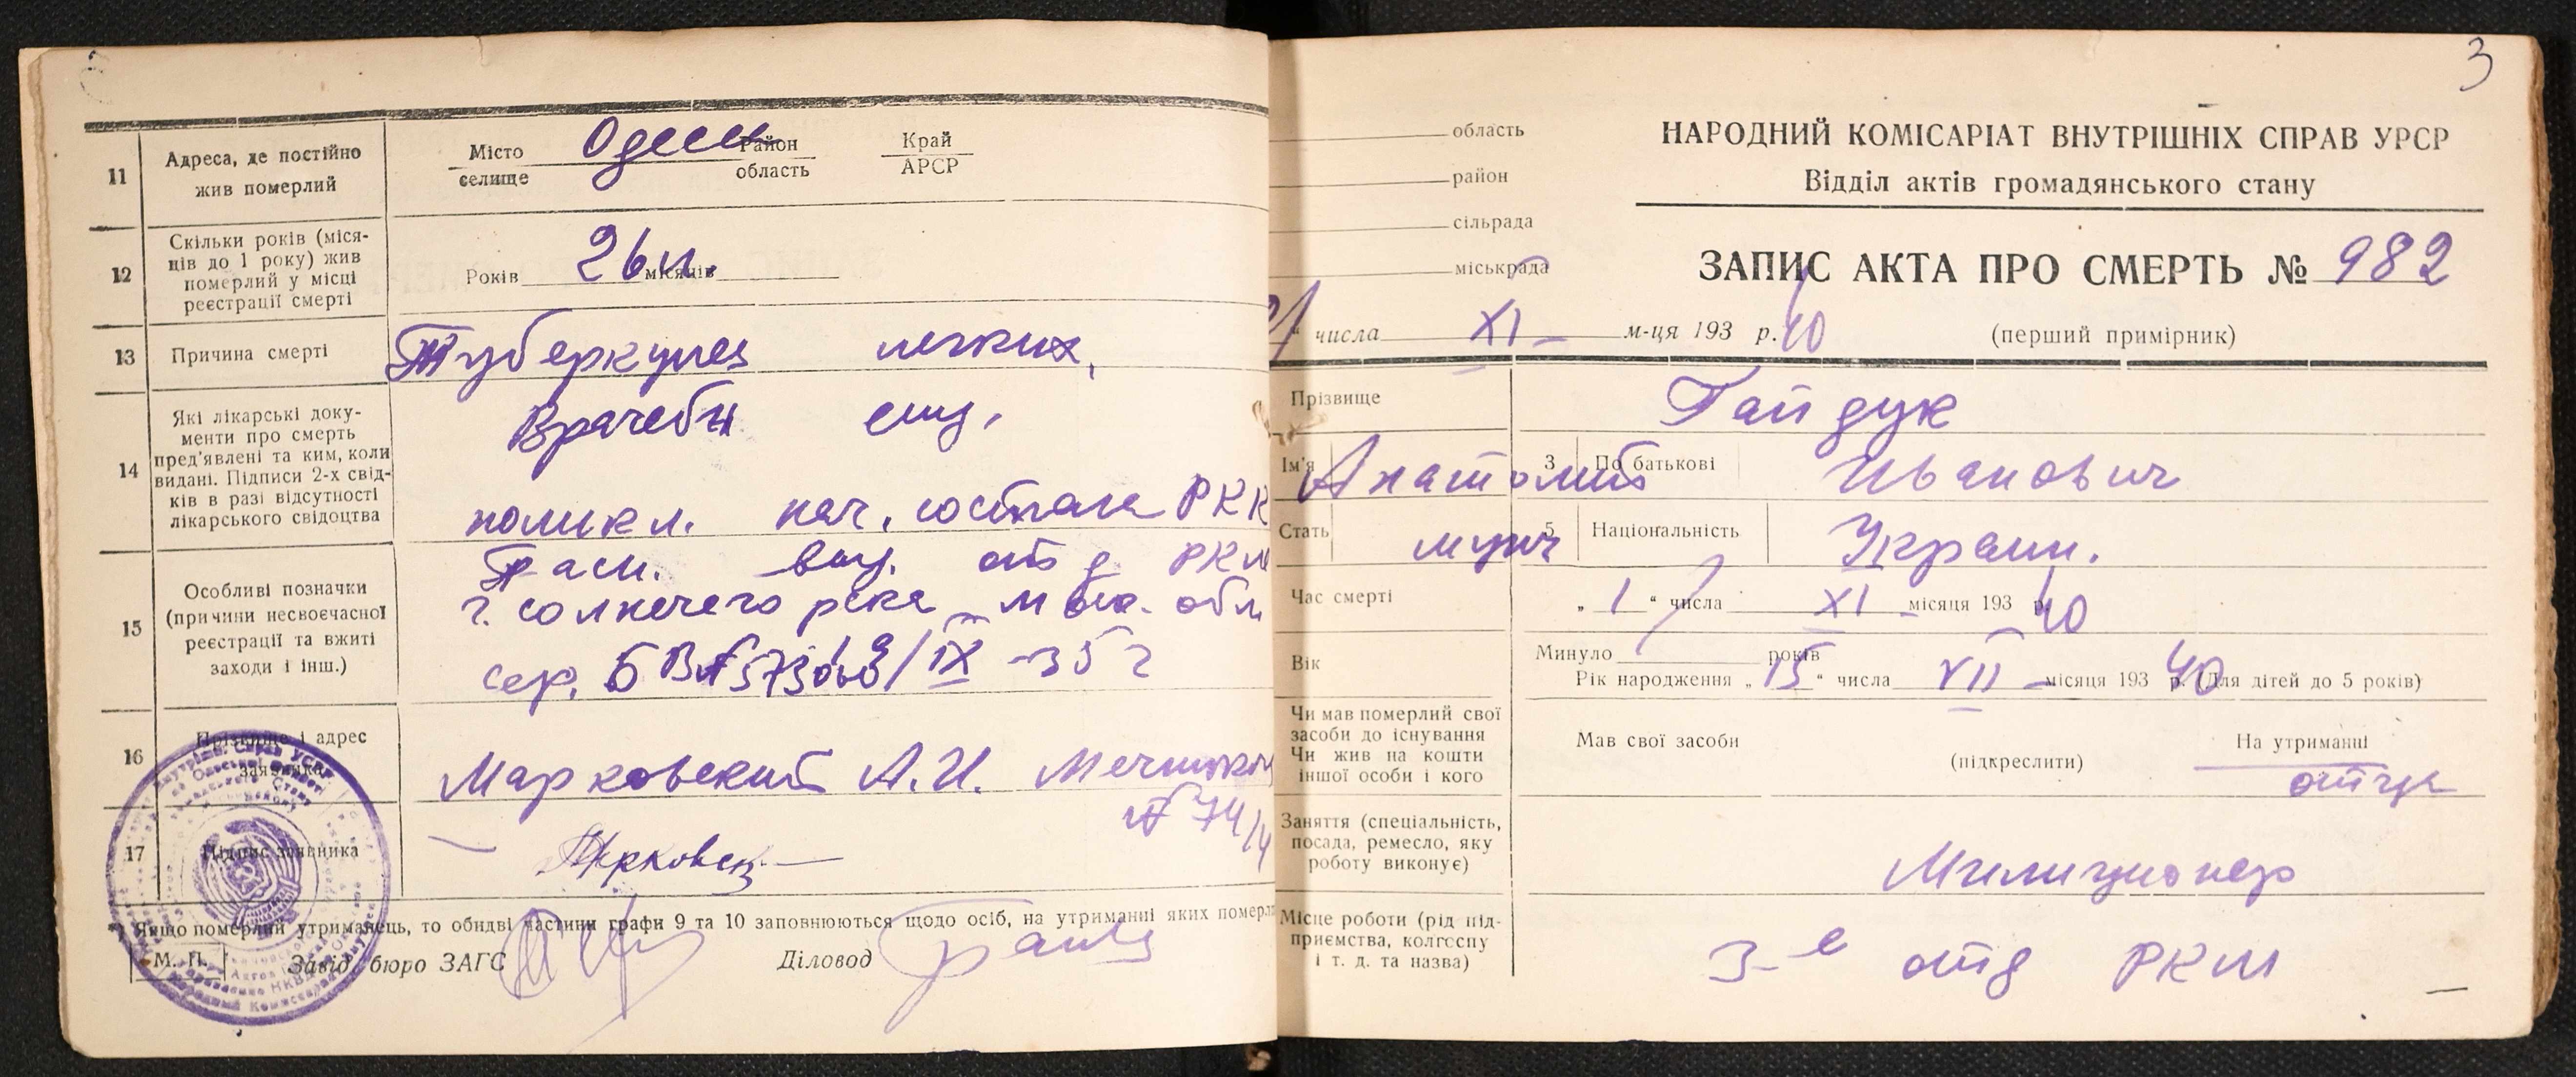 11
Адреса, де постійно
жив померлий
Місто
селище
Одесса
Район
область
Край
АРСР
12
Скільки років (міся-
ців до 1 року) жив
померлий у місці
реєстрації смерті
Років
місяців
13
Причина смерті
Туберкулез легких,
14
Які лікарські доку-
менти про смерть
пред'явлені та ким, коли
видані. Підписи 2-х свід-
ків в разі відсутності
лікарського свідоцтва
Врачебн
поликл. нач. состава РКК
15
Особливі позначки
(причини несвоєчасної
реєстрації та вжиті
заходи і інш.)
отд РКМ
обл
сер. БВ
IX 35 г
16
Прізвище і адрес
заявника
Марковский А.И.
№ 74/4
17
Підпис заявника
*) Якщо померлий утриманець, то обидві частини графи 9 та 10 заповнюються щодо осіб, на утриманні яких
М. П.
Завід. бюро ЗАГС
Діловод
3
область
район
сільрада
міськрада
НАРОДНИЙ КОМІСАРІАТ ВНУТРІШНІХ СПРАВ УРСР
Відділ актів громадянського стану
ЗАПИС АКТА ПРО СМЕРТЬ № 982
" числа XI м-ця 193 р. 40
(перший примірник)
Прізвище
Гайдук
Ім'я
Анатолий
3
По батькові
Иванович
Стать
муж
5
Національність
Украин.
Час смерті
„ 1 “ числа XI місяця 193 р. 40
Вік
Минуло років
Рік народження „ 15 “ числа VII місяця 193 р. 40 (Для дітей до 5 років)
Чи мав померлий свої
засоби до існування
Чи жив на кошти
іншої особи і кого
Мав свої засоби
(підкреслити)
На утриманні
отца
Заняття (спеціальність,
посада, ремесло, яку
роботу виконує)
Милиционер
Місце роботи (рід під-
приємства, колгоспу
і т. д. та назва)
3-е отд РКМ